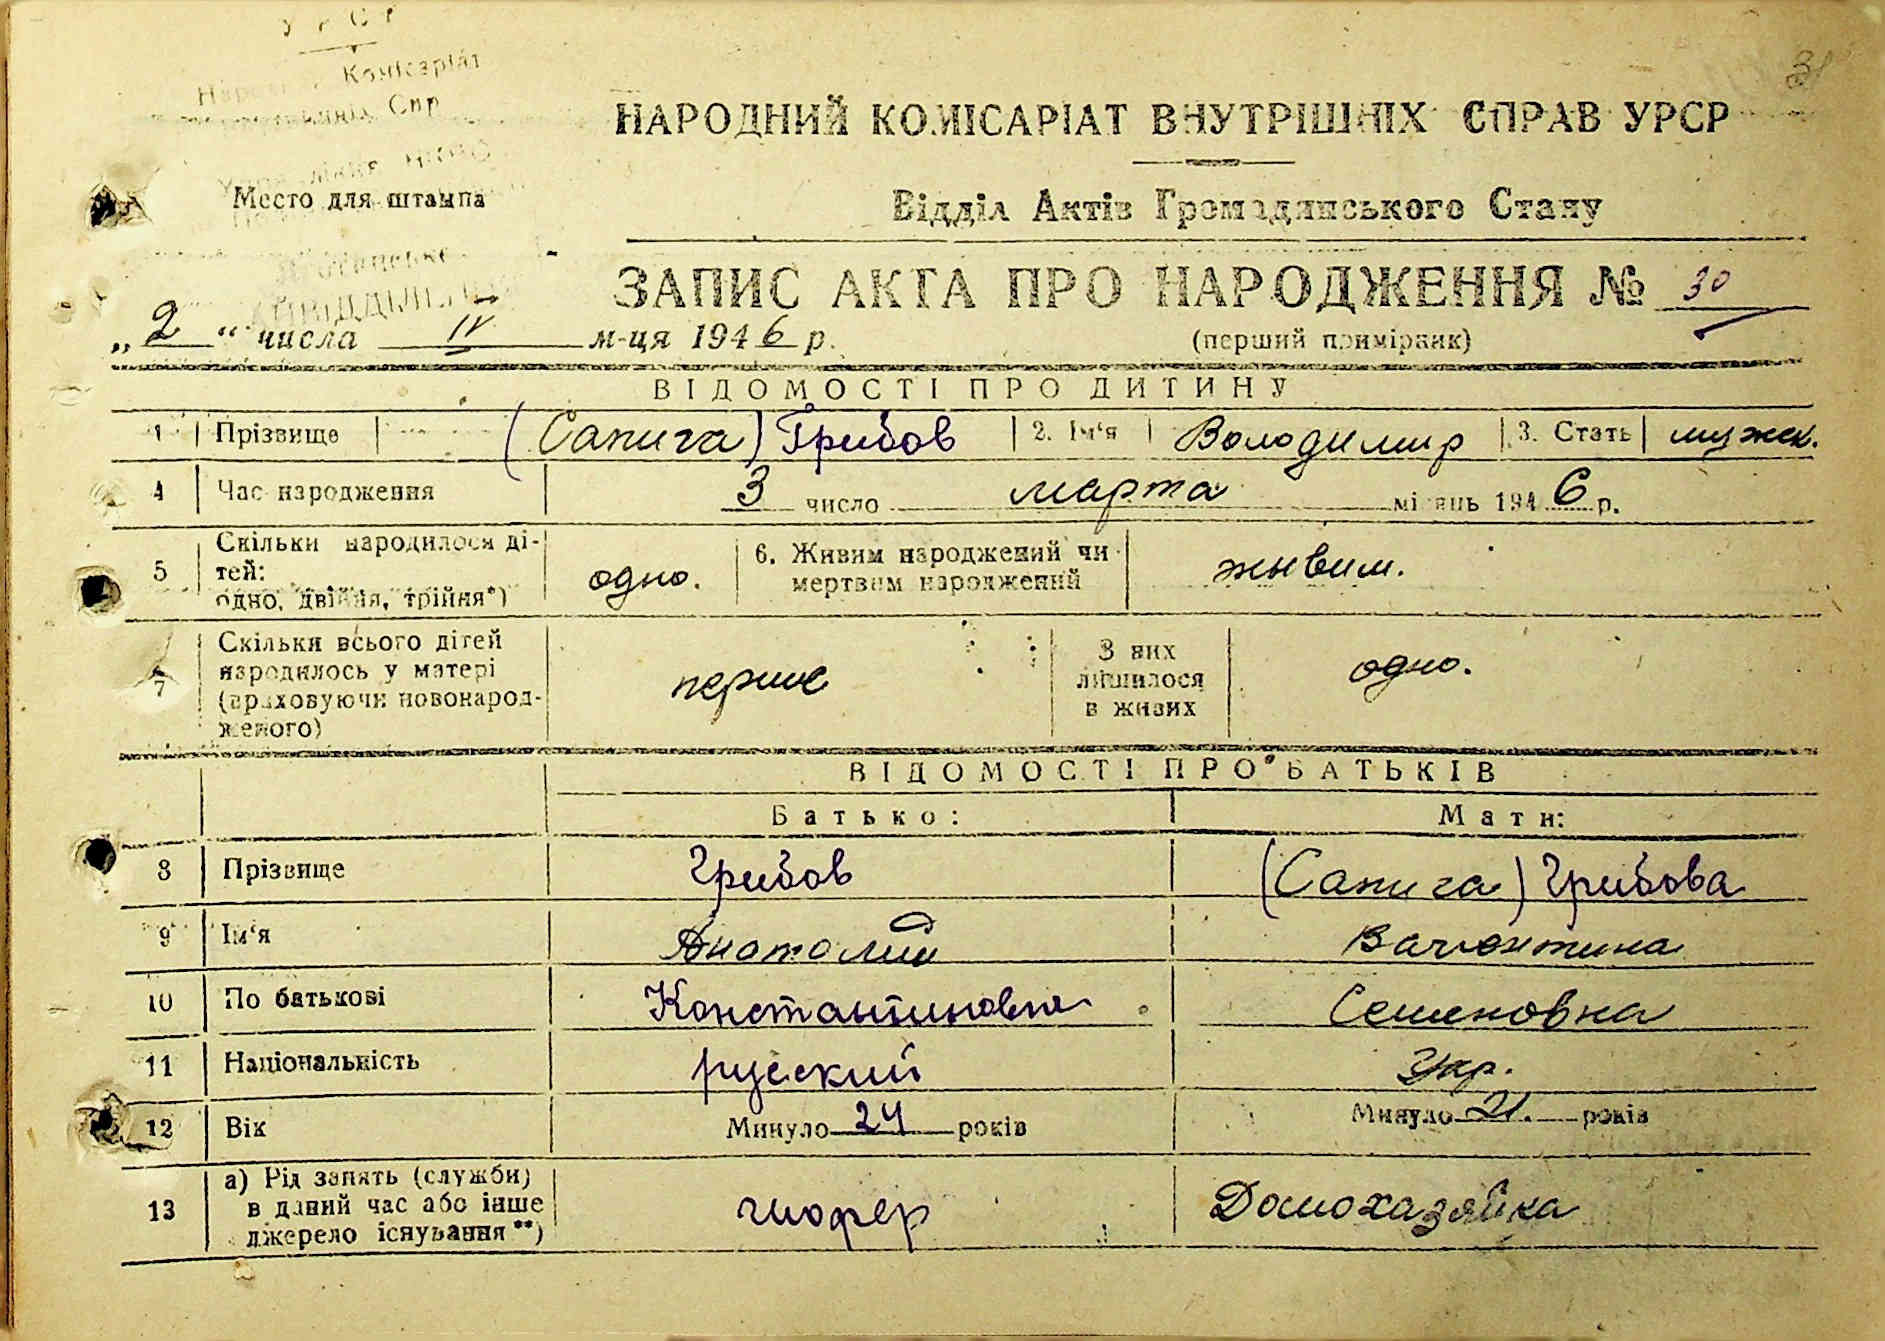 УРСР
Комісаріат
Внутрішніх Спр
Управління НКВС
31
НАРОДНИЙ КОМІСАРІАТ ВНУТРІШНІХ СПРАВ УРСР
Место для штампа
Відділ Актів Громадянського Стану
ЗАПИС АКТА ПРО НАРОДЖЕННЯ № 30
„2“ числа IV м-ця 1946 р.
(перший примірник)
ВІДОМОСТІ ПРО ДИТИНУ
1 Прізвище (Сапига) Грибов 2. Ім‘я Володимир 3. Стать мужск.
4 Час народження 3 число марта місяць 1946 р.
5 Скільки народилося ді-
тей:
одно, двійня, трійня*) одно. 6. Живим народжений чи
мертвим народжений живим.
7 Скільки всього дітей
народилось у матері
(враховуючи новонарод-
женого) перше З них
лишилося
в живих одно.
ВІДОМОСТІ ПРО БАТЬКІВ
Батько: Мати:
8 Прізвище Грибов (Сапига) Грибова
9 Ім‘я Анатолий Валентина
10 По батькові Константинович Семеновна
11 Національність русский Укр.
12 Вік Минуло 24 років Минуло 21. років
13 а) Рід занять (служби)
в даний час або інше
джерело існування**) шофер Домохазяйка